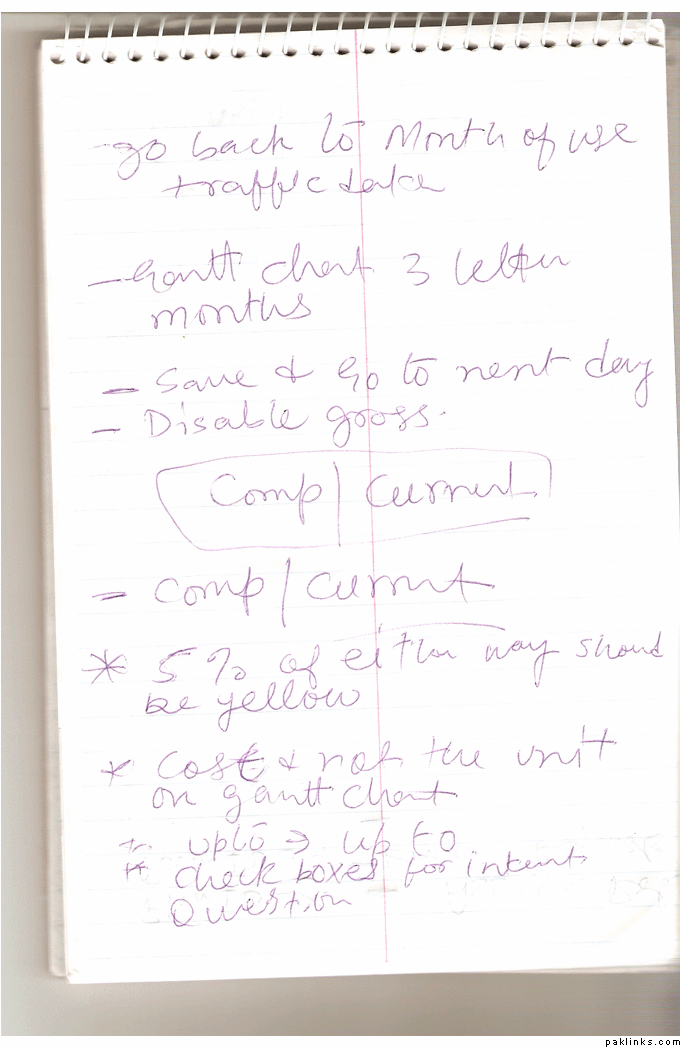 - go back to Month of use
traffic data
- Gantt chart 3 letter
months
- Save & Go to next day
- Disable gross.
Comp | Current
= Comp / Current
* 5% of either way should
be yellow
* Cost & not the unit
on gantt chart
* upto → up to
* check boxes for intent
Question
paklinks.com